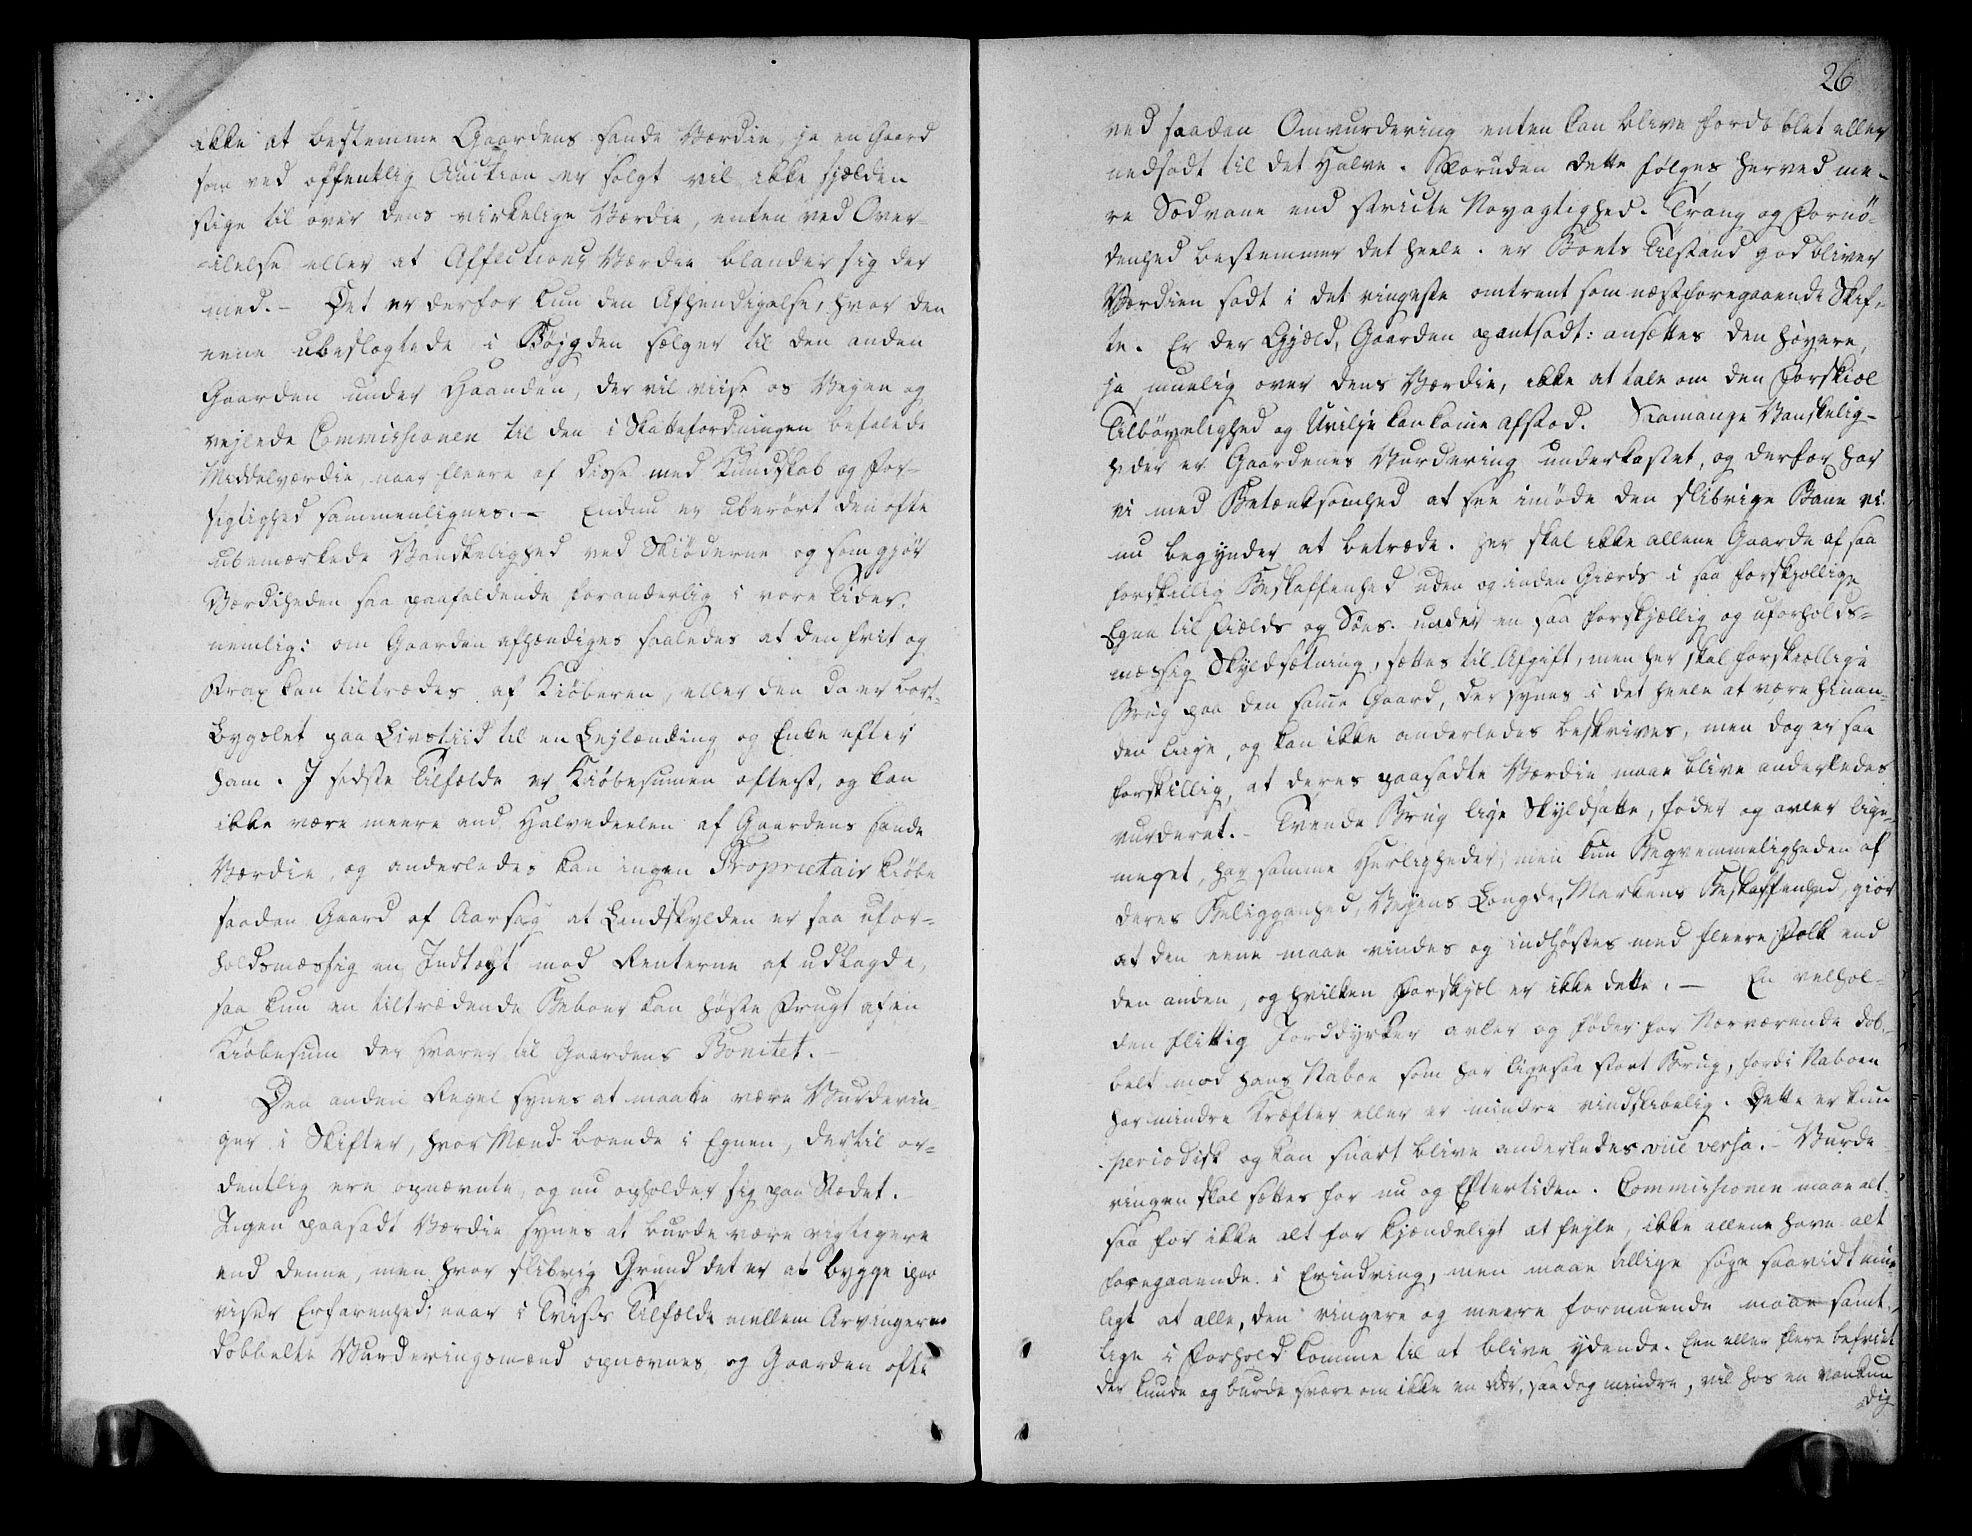 ikke at bestemme Gaardens sande Værdie, ja en Gaard
som ved offentlig Auction er solgt vil ikke sjælden
stige til over dens virkelige Værdie, enten ved Over-
-ilelse eller at Affections Værdie blander sig der
med. - Det er derfor kun den Afhændigelse, hvor den
eene ubeslægtede i Bøjgden sælger til den anden
Gaarden under Haanden, der vil viise os Veyen og
vejlede Commissionen til den i Skatteforordningen befalede
Middelværdie, naar fleere af disse med Kundskab og For-
sigtighed sammenlignes. - Endnu er uberørt den ofte
ubemærkede Vanskelighed ved Skiøderne og som gjør
Værdiheden saa paafaldende foranderlig i vore Tider,
nemlig: om Gaarden afhændiges saaledes at den frit og
strax kan tiltrædes af Kiøberen, eller den da er bort-
bygslet paa Livstiid til en Lejlænding og Enke efter
ham. I sidste Tilfælde er Kiøbesumen oftest, og kan
ikke være meere end Halvedeelen af Gaardens sande
Værdie, og anderledes kan ingen Proprietair kiøbe
saadan Gaard af Aarsag at Landskylden er saa ufor-
holdsmæssig en Indtægt mod Renterne af udlagde,
saa kun en tiltrædende Beboer kan høste Frugt af en
Kiøbesum der svarer til Gaardens Bonitet. -
Den anden Regel synes at maatte være Vurderin-
ger i Skifter, hvor Mænd boende i Egnen, dertil or-
dentlig ere opnævnte, og nu opholder sig paa Stædet.
Ingen paasadt Værdie synes at burde være rigtigere
end denne, men hvor slibrig Grund det er at bygge paa
viser Erfarenhed; naar i Tvists Tilfælde mellem Arvingerne
dobbelte Vurderingsmænd opnævnes og Gaarden ofte
26
ved saadan Omvurdering enten kan blive fordoblet eller
nedsadt til det Halve. Foruden dette følges herved me-
re Sædvane end stricte Nøyagtighed. Trang og Fornø-
denhed bestemmer det heele. er Boets Tilstand god bliver
Værdien sadt i det ringeste omtrent som næstforegaaende Skif-
te. Er der Gjæld, Gaarden pantsadt: ansættes den høyere,
ja muelig over dens Værdie, ikke at tale om den Forskiæl
Tilbøyelighed og Uvilje kan komme afsted. Saamange Vanskelig-
heder er Gaardenes Vurdering underkastet, og derfor har
vi med Betænksomhed at see imøde den slibrige Bane vi
nu begynder at betræde. Her skal ikke allene Gaarde af saa
forskiellig Beskaffenhed uden og inden Giærds i saa forskjellige
Egne til Fields og Søes. under en saa forskjællig og uforholds-
mæssig Skyldsætning, sættes til Afgift, men her skal forskiællige
Brug paa den samme Gaard, der synes i det heele at være hinan-
den liige, og kan ikke anderledes beskrives, men dog er saa
forskiellig, at deres paasadte Værdie maae blive anderledes
vurderet. - Tvende Brug lige Skyldsatte, føder og avler lige-
meget, har samme Herligheder, men kun Beqvemmeligheden af
deres Beliggenhed, Veyens Længde, Markens Beskaffenhed, giør
at den eene maae vindes og indhøstes med fleere Folk end
den anden, og hvilken Forskjæl er ikke dette. - En velhol-
den flittig Jorddyrker avler og føder for Nærværende dob-
belt mod hans Naboe som har ligesaa stort Brug, fordi Naboen
har mindre Kræfter eller er mindre vindskibelig. Dette er kun
periodisk og kan snart blive anderledes vice versa. - Vurde-
ringen skal sættes for nu og Eftertiden. Commissionen maae alt-
saa for ikke alt for kjændeligt at fejle, ikke allene have alt
foregaaende i Erindring, men maae tillige søge saavidt mue-
ligt at alle, den ringere og meere formuende maae samt-
lige i Forhold komme til at blive ydende. Een eller flere befriet
der kunde og burde svare om ikke en rdr, saa dog mindre, vil hos en vankun-
dig